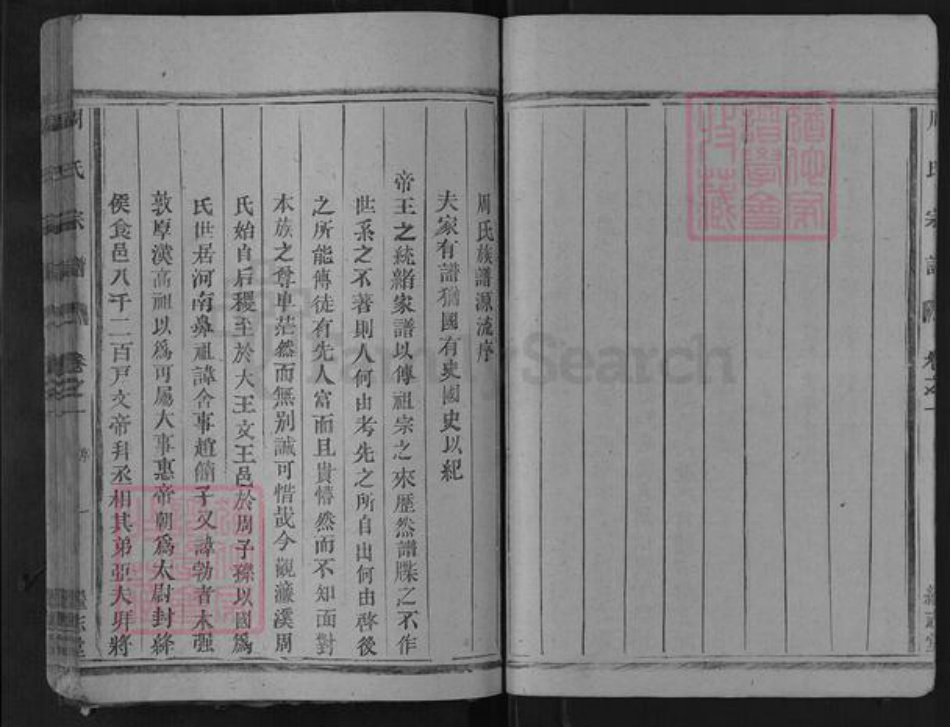 周氏宗譜
卷之一
周氏族譜源流序
夫家有譜猶國有史國史以紀
帝王之統緒家譜以傳祖宗之來歷然譜牒之不作
世系之不著則人何由考先之所自出何由啓後
之所能傳徒有先人富而且貴懵然而不知面對
本族之尊卑茫然而無别誠可惜哉今觀濂溪周
氏始自后稷至於大王文王邑於周子孫以國爲
氏世居河南鼻祖諱舍事趙簡子又諱勃者木强
敦厚漢高祖以爲可屬大事惠帝朝爲太尉封絳
侯食邑八千二百戸文帝拜丞相其弟亞夫拜將
周氏宗譜
卷之一
序
一
FamilySearch